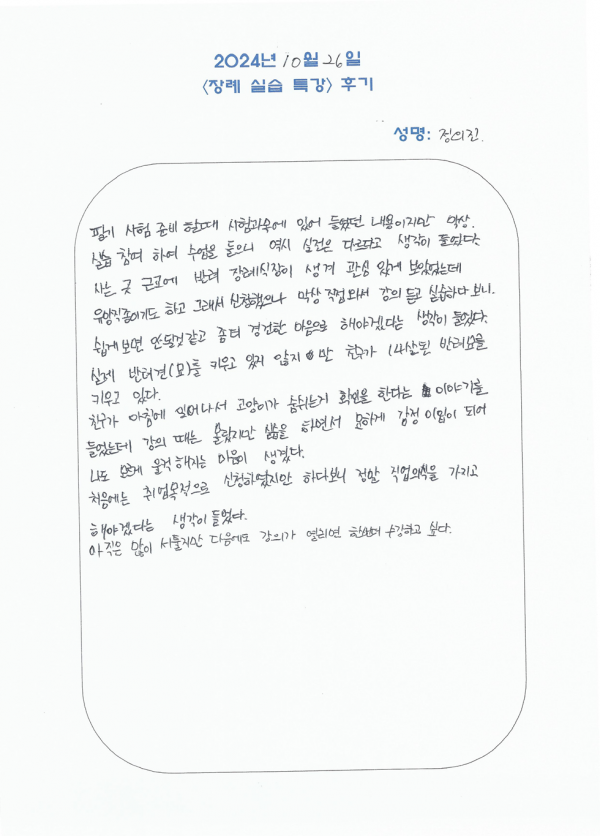 2024년 10월 26일
<장례 실습 특강> 후기
성명: 정의진
필기 시험 준비 할때 시험과목에 있어 들었던 내용이지만 막상
실습 참여 하여 수업을 들으니 역시 실전은 다르다고 생각이 들었다.
사는 곳 근교에 반려 장례식장이 생겨 관심 있게 보았었는데
유망직종이기도 하고 그래서 신청했으나 막상 직접와서 강의 듣고 실습하다 보니.
쉽게보면 안될것같고 좀더 경건한 마음으로 해야겠다는 생각이 들었다.
실제 반려견(묘)를 키우고 있지 않지만 친구가 14살된 반려묘를
키우고 있다.
친구가 아침에 일어나서 고양이가 숨쉬는거 확인을 한다는 이야기를
들었는데 강의 때는 몰랐지만 실습을 하면서 묘하게 감정 이입이 되어
나도 모르게 울컥 해지는 마음이 생겼다.
처음에는 취업목적으로 신청하였지만 하다보니 정말 직업의식을 가지고
해야겠다는 생각이 들었다.
아직은 많이 서툴지만 다음에도 강의가 열리면 한번더 수강하고 싶다.